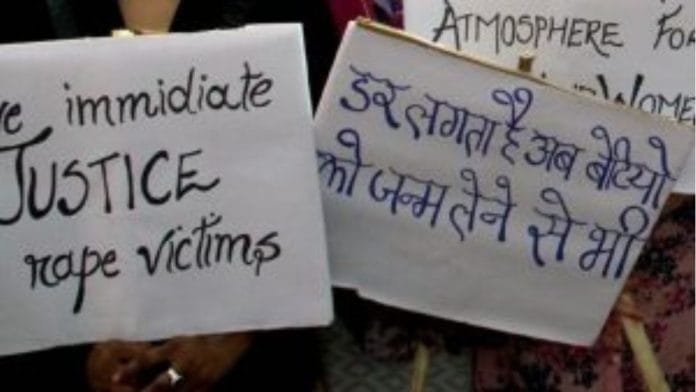 immidiate
JUSTICE
rape victims
डर लगता है अब बेटियो
को जन्म लेने से भी
ATMOSPHERE FOR
WOMEN